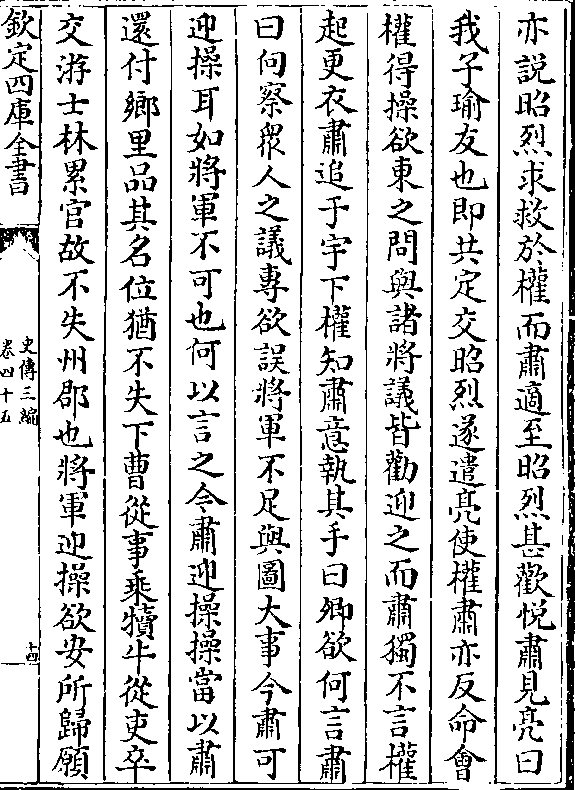 亦說昭烈求救於權而肅適至昭烈甚歡悅肅見亮曰
我子瑜友也即共定交昭烈遂遣亮使權肅亦反命會
權得操欲東之問與諸將議皆勸迎之而肅獨不言權
起更衣肅追于宇下權知肅意執其手曰卿欲何言肅
曰向察衆人之議專欲誤將軍不足與圖大事今肅可
迎操耳如將軍不可也何以言之今肅迎操操當以肅
還付鄉里品其名位猶不失下曹從事乘犢牛從吏卒
交游士林累官故不失州郡也將軍迎操欲安所歸願
欽定四庫全書
史傳三編
卷四十五
十四